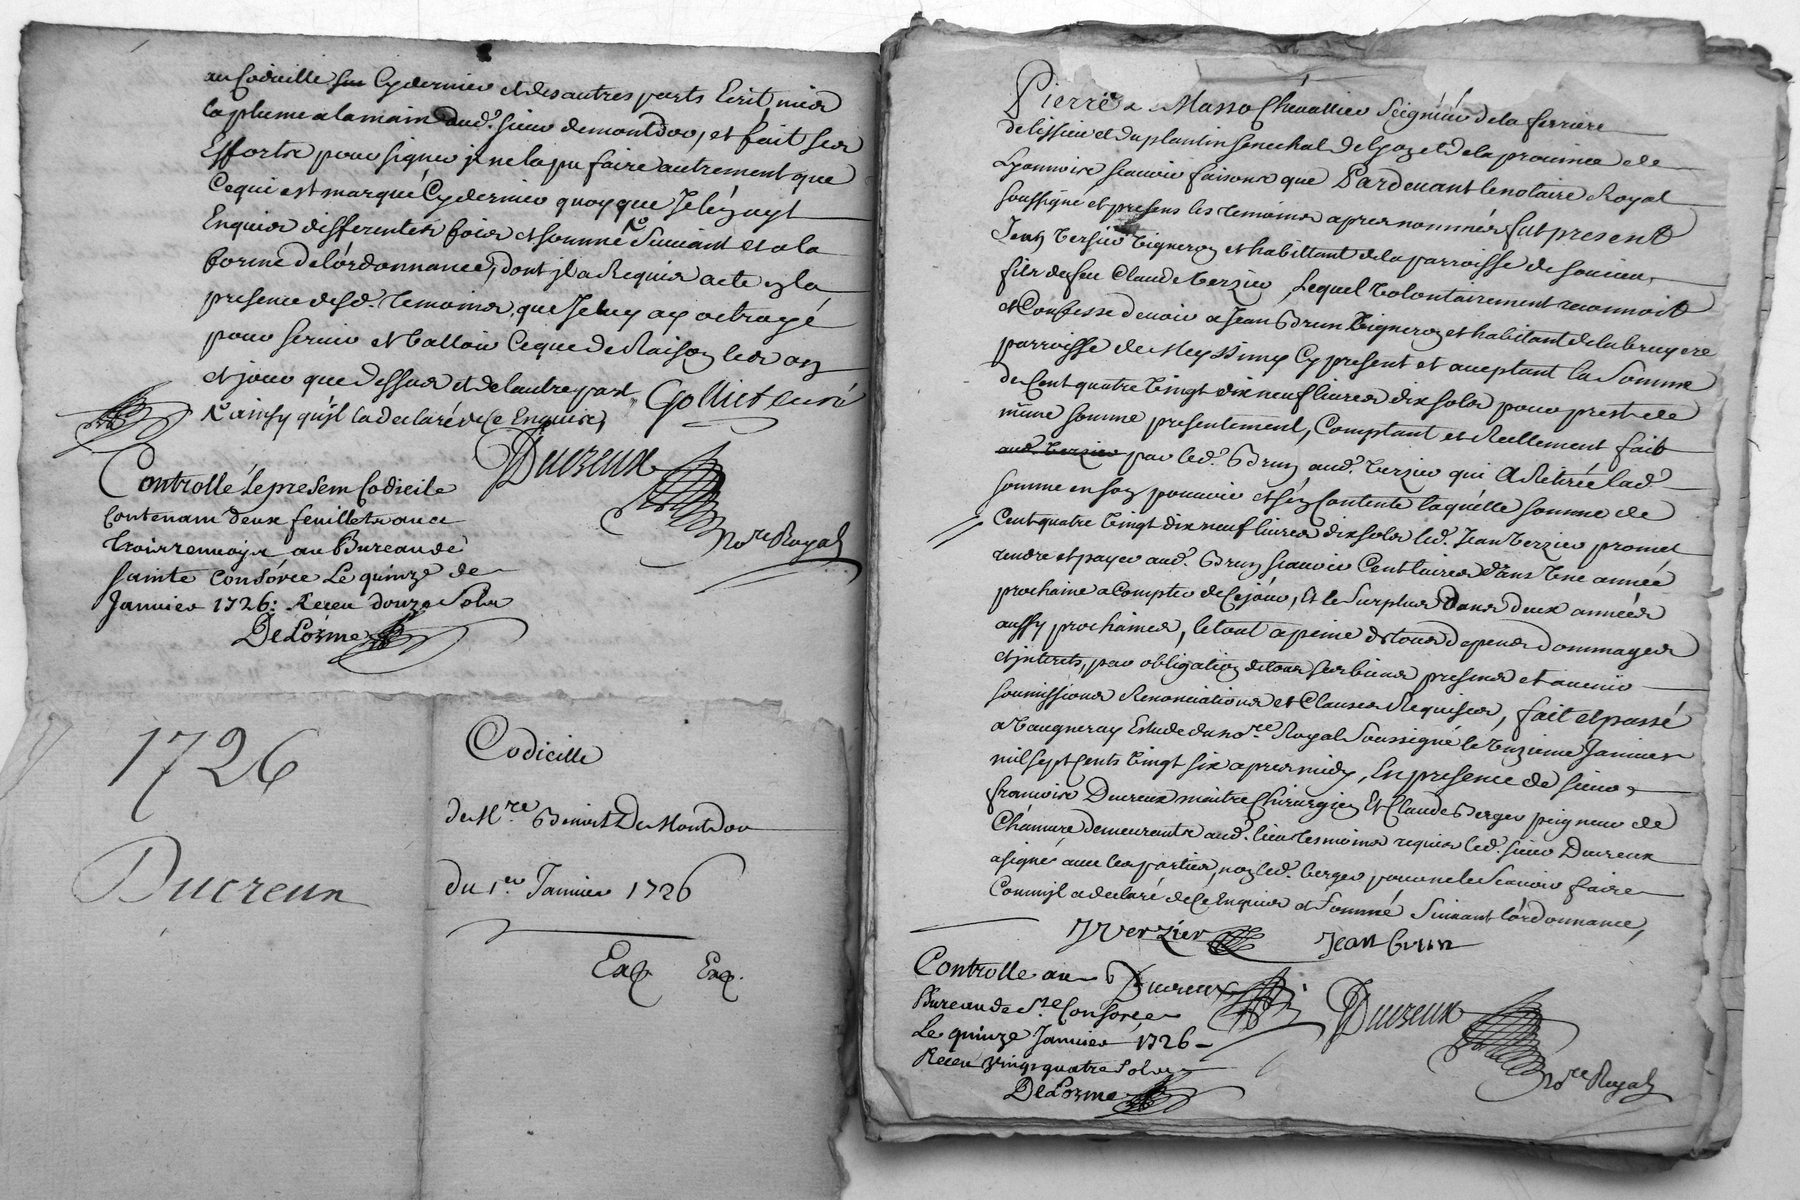 au Codicille Cydernier et des autres parts Ecrit, mis
la plume a la main aud.t sieur demontdor, et fait ses
Efforts pour signer il ne la pu faire autrement que
Ce qui est marqué Cydernier quoyque Je layaye
Enquis differentes fois et sommé Suivant et a la
forme de l'ordonnance, dont il a Requis acte en la
presence desd. temoins, que Je luy ay octroyé
pour servir et valloir Ce que de Raison les an
et jour que dessus et de l'autre part Golliet curé
ainsy qu'il la declaré de Ce Enquis
Ducreux
no.re Royal
Controllé le present Codicile
Contenant deux feuillets avec
trois renvoys au Bureau de
sainte Consorce Le quinze de
Janvier 1726: Receu douze Sols
DeLorme
1726
Ducreux
Codicille
de M.re Benoist De Montdor
du 1.er Janvier 1726
Exp Exp.
Pierre Masso Chevallier Seigneur de la ferriere
de lissieu et du plantin senechal de Lyon et de la province de
Lyonnois scavoir faisons que Pardevant le notaire Royal
soussigné et presens les temoins apres nommés fut present
Jean Verzier Vigneron et habittant de la parroisse de soucieu
fils de feu Claude Verzier, Lequel Volontairement reconnoit
et Confesse devoir a Jean Brun Vigneron et habitant de la bruyere
parroisse de Meyssimy Cy present et acceptant la Somme
de Cent quatre Vingt dix neuf livres dix sols pour prest de
même somme presentement, Comptant et Reellement fait
aud. Verzier par led. Brun aud. Verzier qui a Retirée lad.
somme en son pouvoir et s'en Contente laquelle somme de
Cent quatre Vingt dix neuf livres dix sols led. Jean Verzier promet
rendre et payer aud. Brun scavoir Cent livres dans Une année
prochaine a Compter de Cejour, et le Surplus dans deux années
aussy prochaines, le tout a peine de tous depens dommages
et interets, par obligation de tous ses biens presens et avenir
soumissions Renonciations et Clauses Requises, fait et passé
a Vaugneray Estude du no.re Royal Soussigné le Unzieme Janvier
mil sept Cents Vingt six apres midy, En presence de sieur
francois Ducreux maitre Chirurgien Et Claude Berger peigneur de
Chanvre demeurants aud. lieu tesmoins requis led. sieur Ducreux
a signé avec les parties, non led. berger pour ne le Scavoir faire
Comm'il a declaré de Ce Enquis et Sommé Suivant l'ordonnance,
J Verzier Jean brun
Ducreux Ducreux
no.re Royal
Controlle au
Bureau de S.te Consorce
Le quinze Janvier 1726
Receu vingt quatre Sols
DeLorme